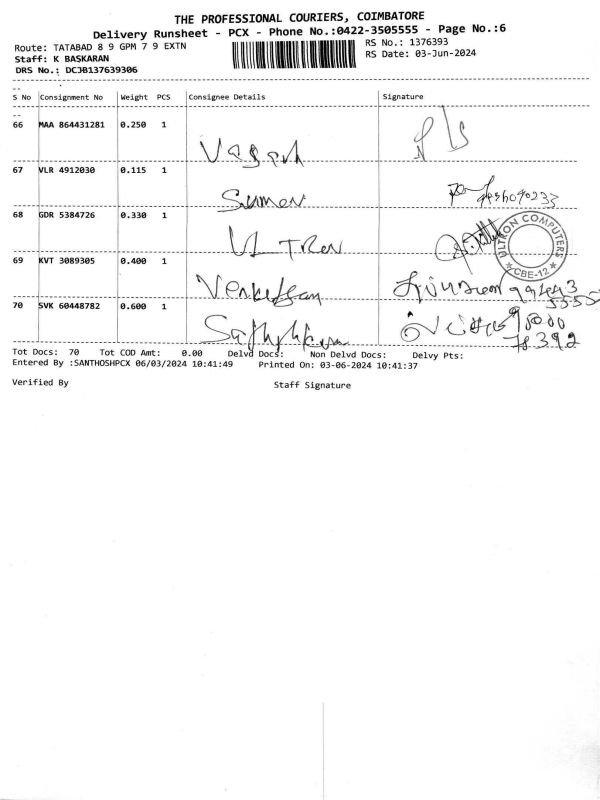 THE PROFESSIONAL COURIERS, COIMBATORE
Delivery Runsheet - PCX - Phone No.:0422-3505555 - Page No.:6
Route: TATABAD 8 9 GPM 7 9 EXTN
RS No.: 1376393
Staff: K BASKARAN
RS Date: 03-Jun-2024
DRS No.: DCJB137639306
S No Consignment No Weight PCS Consignee Details Signature
66 MAA 864431281 0.250 1
67 VLR 4912030 0.115 1 Sumen
68 GDR 5384726 0.330 1 Ul Tron
ULTRON COMPUTERS
CBE-12
69 KVT 3089305 0.400 1
70 SVK 60448782 0.600 1
78392
Tot Docs: 70 Tot COD Amt: 0.00 Delvd Docs: Non Delvd Docs: Delvy Pts:
Entered By :SANTHOSHPCX 06/03/2024 10:41:49 Printed On: 03-06-2024 10:41:37
Verified By Staff Signature